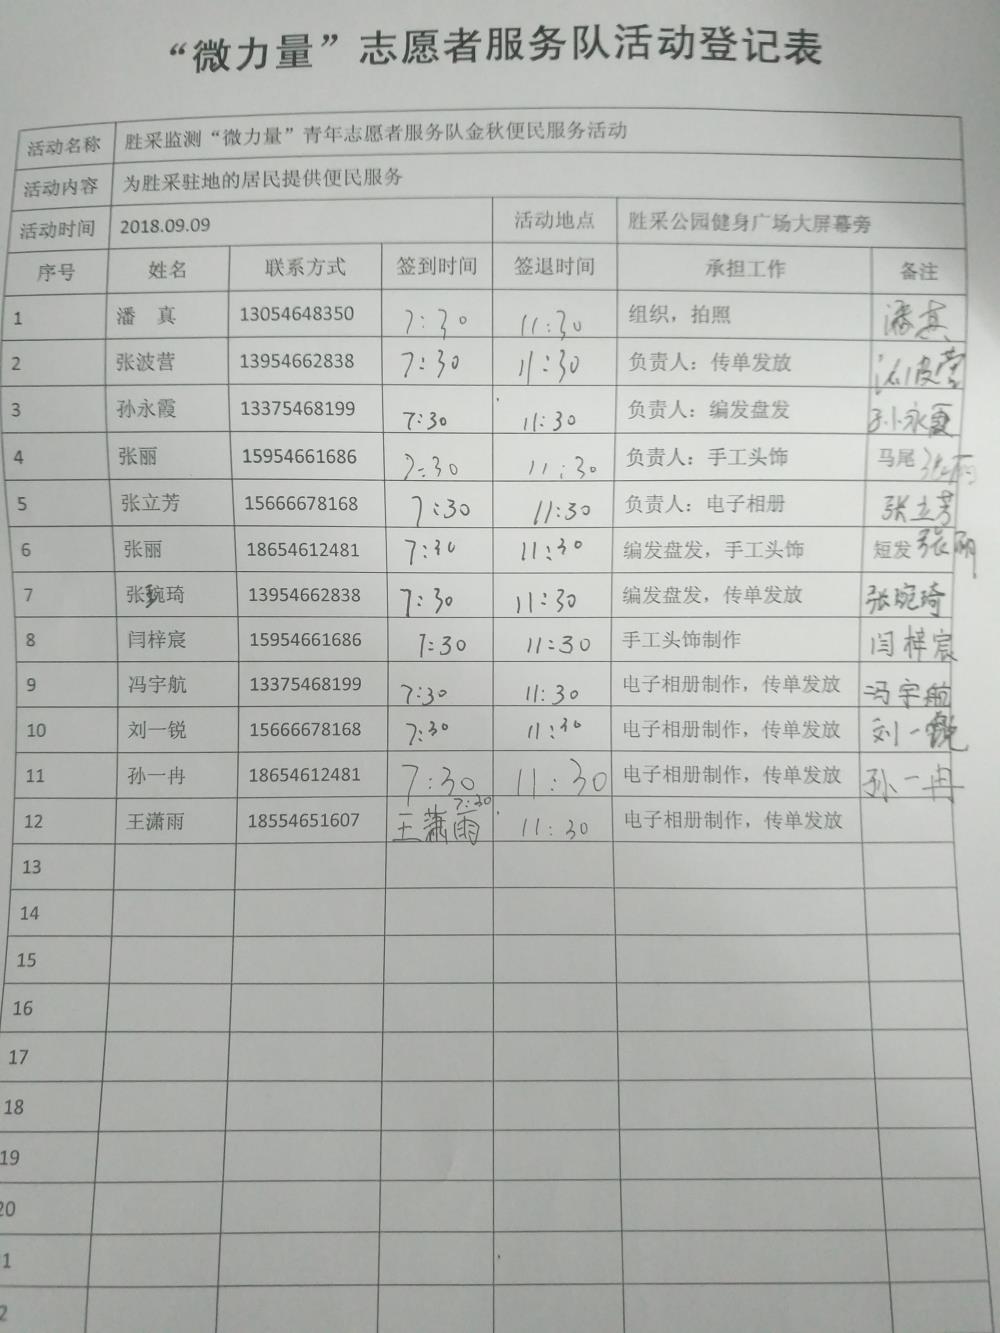 “微力量”志愿者服务队活动登记表
活动名称 胜采监测“微力量”青年志愿者服务队金秋便民服务活动
活动内容 为胜采驻地的居民提供便民服务
活动时间 2018.09.09 活动地点 胜采公园健身广场大屏幕旁
序号 姓名 联系方式 签到时间 签退时间 承担工作 备注
1 潘 真 13054648350 7:30 11:30 组织，拍照 潘真
2 张波营 13954662838 7:30 11:30 负责人：传单发放 张波营
3 孙永霞 13375468199 7:30 11:30 负责人：编发盘发 孙永霞
4 张丽 15954661686 7:30 11:30 负责人：手工头饰 马尾 张丽
5 张立芳 15666678168 7:30 11:30 负责人：电子相册 张立芳
6 张丽 18654612481 7:30 11:30 编发盘发，手工头饰 短发 张丽
7 张琬琦 13954662838 7:30 11:30 编发盘发，传单发放 张琬琦
8 闫梓宸 15954661686 7:30 11:30 手工头饰制作 闫梓宸
9 冯宇航 13375468199 7:30 11:30 电子相册制作，传单发放 冯宇航
10 刘一锐 15666678168 7:30 11:30 电子相册制作，传单发放 刘一锐
11 孙一冉 18654612481 7:30 11:30 电子相册制作，传单发放 孙一冉
12 王潇雨 18554651607 王潇雨 7:30 11:30 电子相册制作，传单发放
13
14
15
16
17
18
19
20
1
2